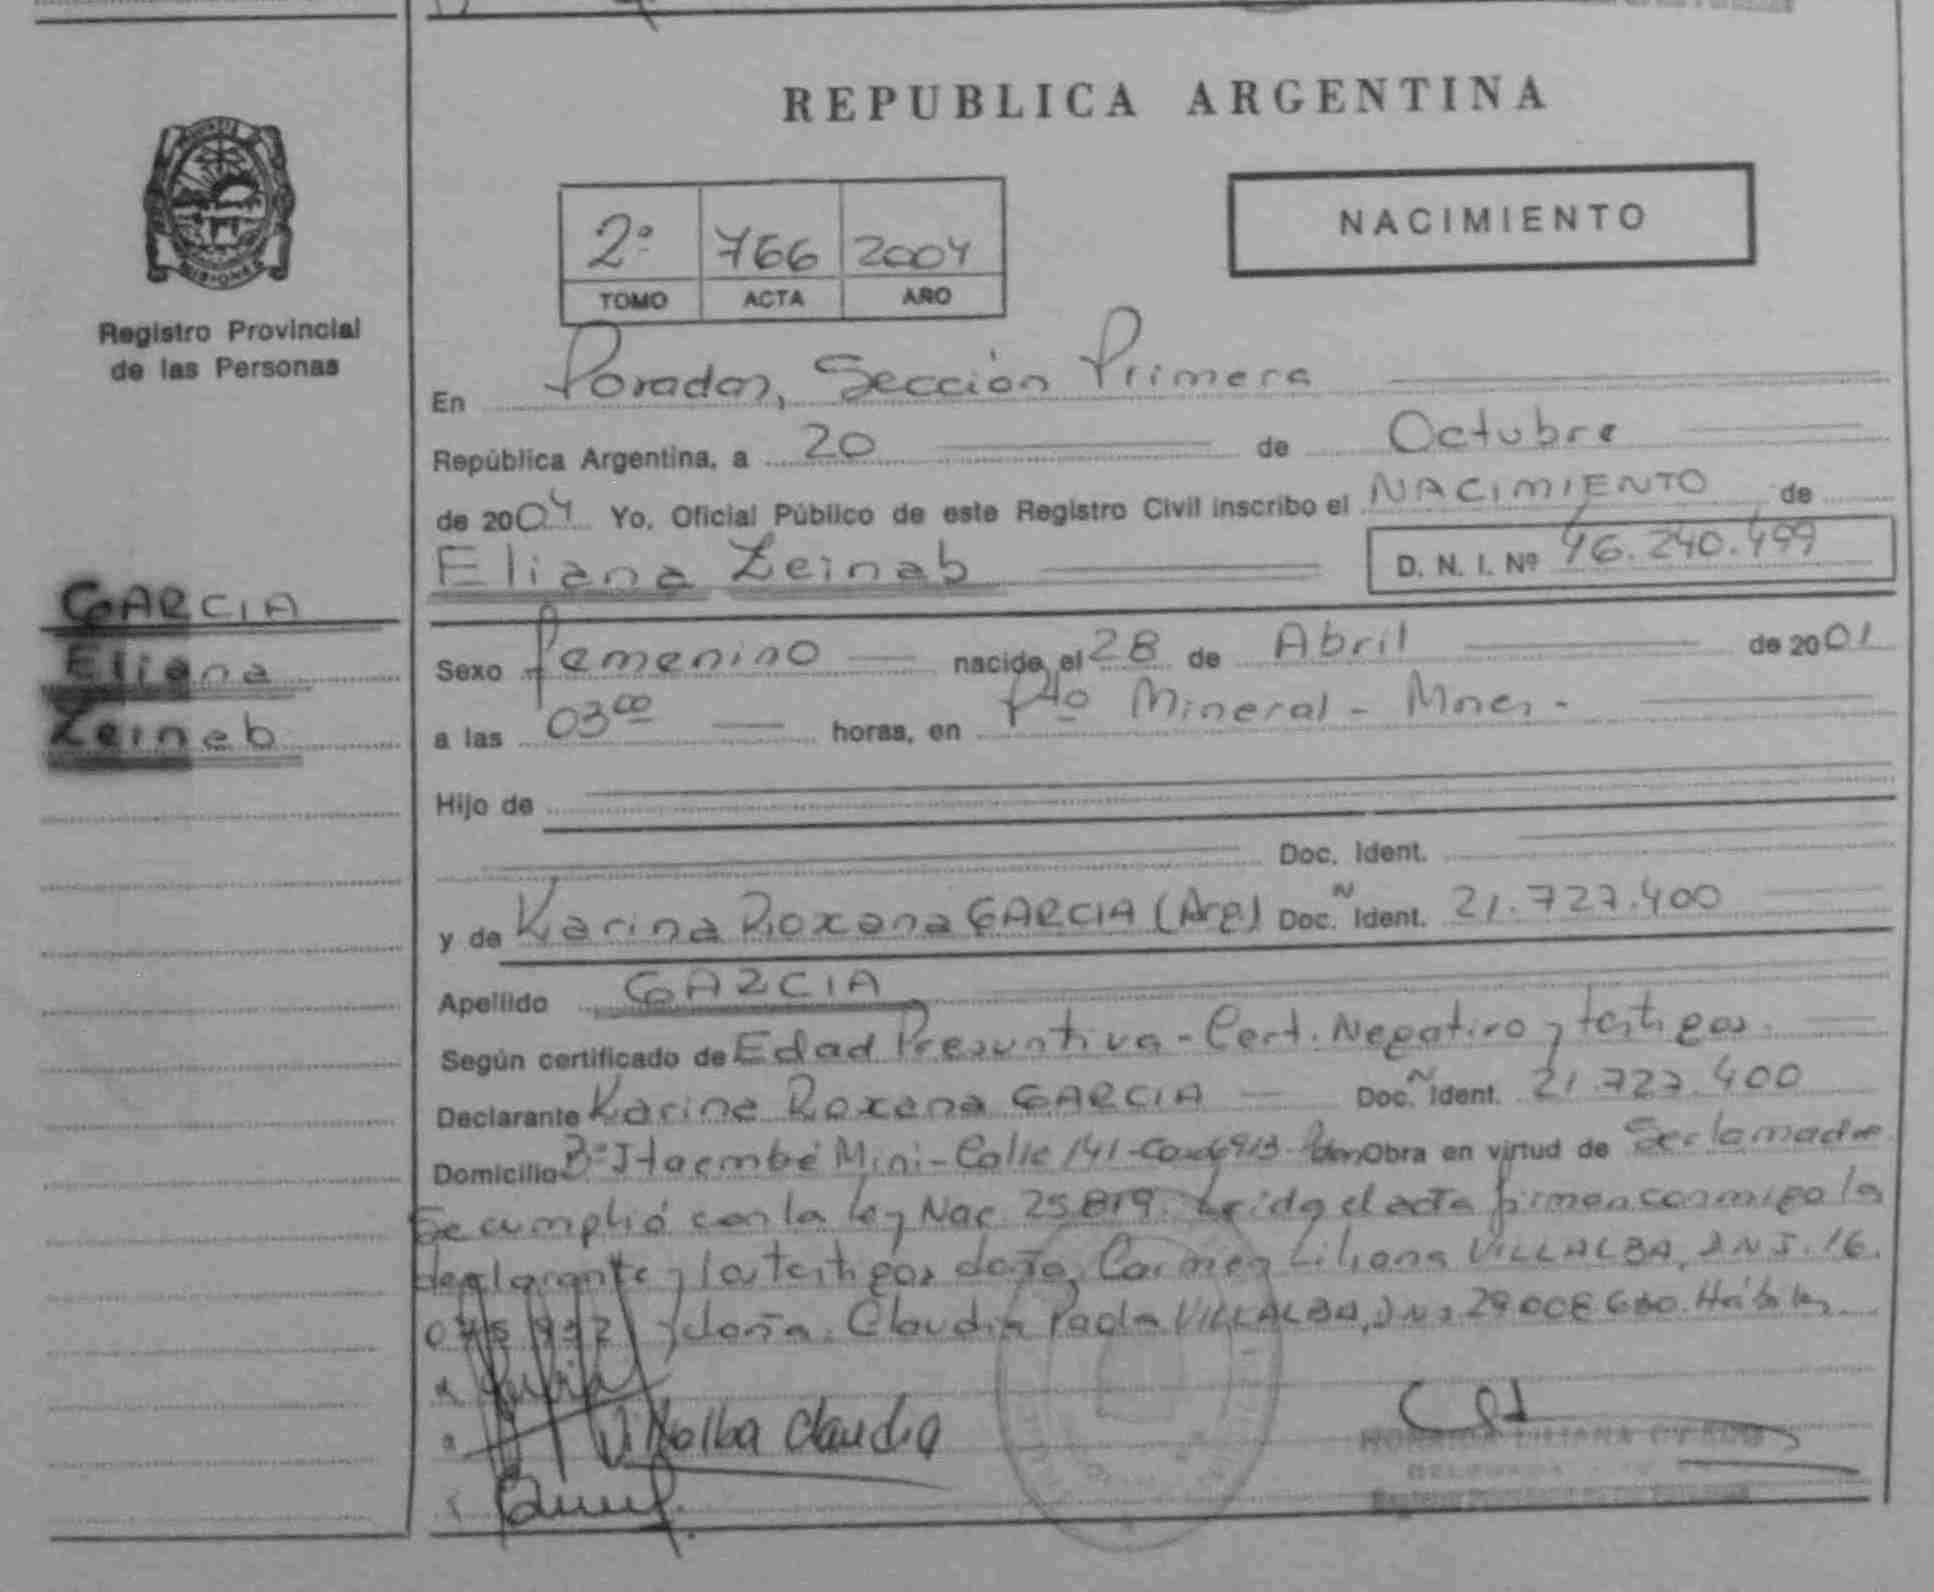 REPUBLICA ARGENTINA
MISIONES
Registro Provincial
de las Personas
NACIMIENTO
2º 766 2004
TOMO ACTA AÑO
En Posadas, Sección Primera
República Argentina, a 20 de Octubre
de 2004 Yo, Oficial Público de este Registro Civil inscribo el NACIMIENTO de
Eliana Zeinab D. N. I. Nº 46.240.499
GARCIA
Eliana
Zeinab
Sexo femenino nacida, el 28 de Abril de 2001
a las 03 00 horas, en Pto Mineral - Mnes -
Hijo de
Doc. Ident.
y de Karina Roxana GARCIA (Arg) Doc. N Ident. 21.727.400
Apellido GARCIA
Según certificado de Edad Presuntiva - Cert. Negativo y testigos.
Declarante Karina Roxana GARCIA Doc. N Ident. 21.727.400
Domicilio Bº Itaembé Mini - Calle 141 - Casa Obra en virtud de Ser la madre
Se cumplió con la ley Nac. 25.819. Leida el acta firman conmigo la
declarante y las testigos doña, Carmen Liliana VILLALBA, D.N.I. 16.
y doña. Claudia Paola VILLALBA, D.N.I. 29.008.680. Hábiles
Villalba Claudia
LILIANA